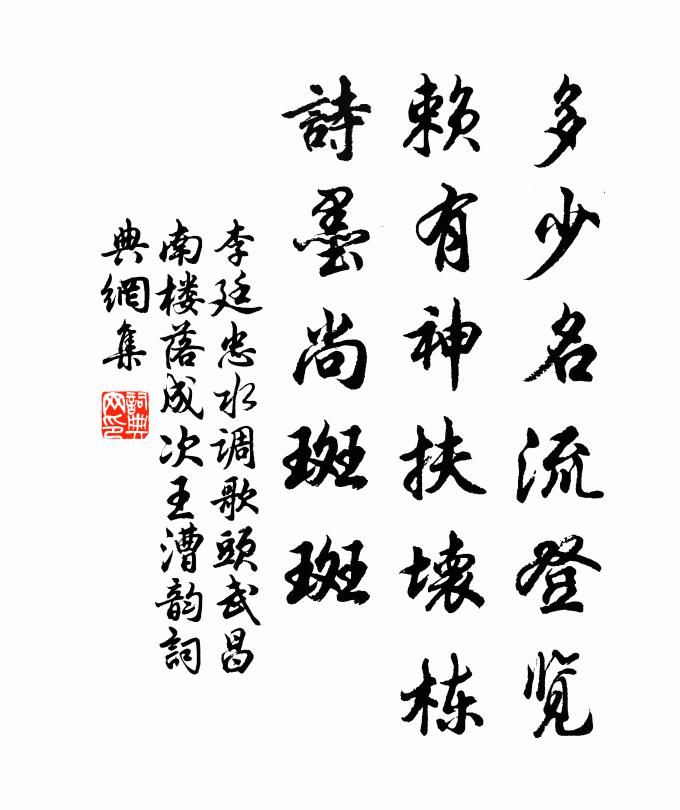 多少名流登览
赖有神扶坏栋
詩墨尚斑斑
李廷忠水调歌頭武昌
南楼落成次王漕韵詞
典網集
詞典网印